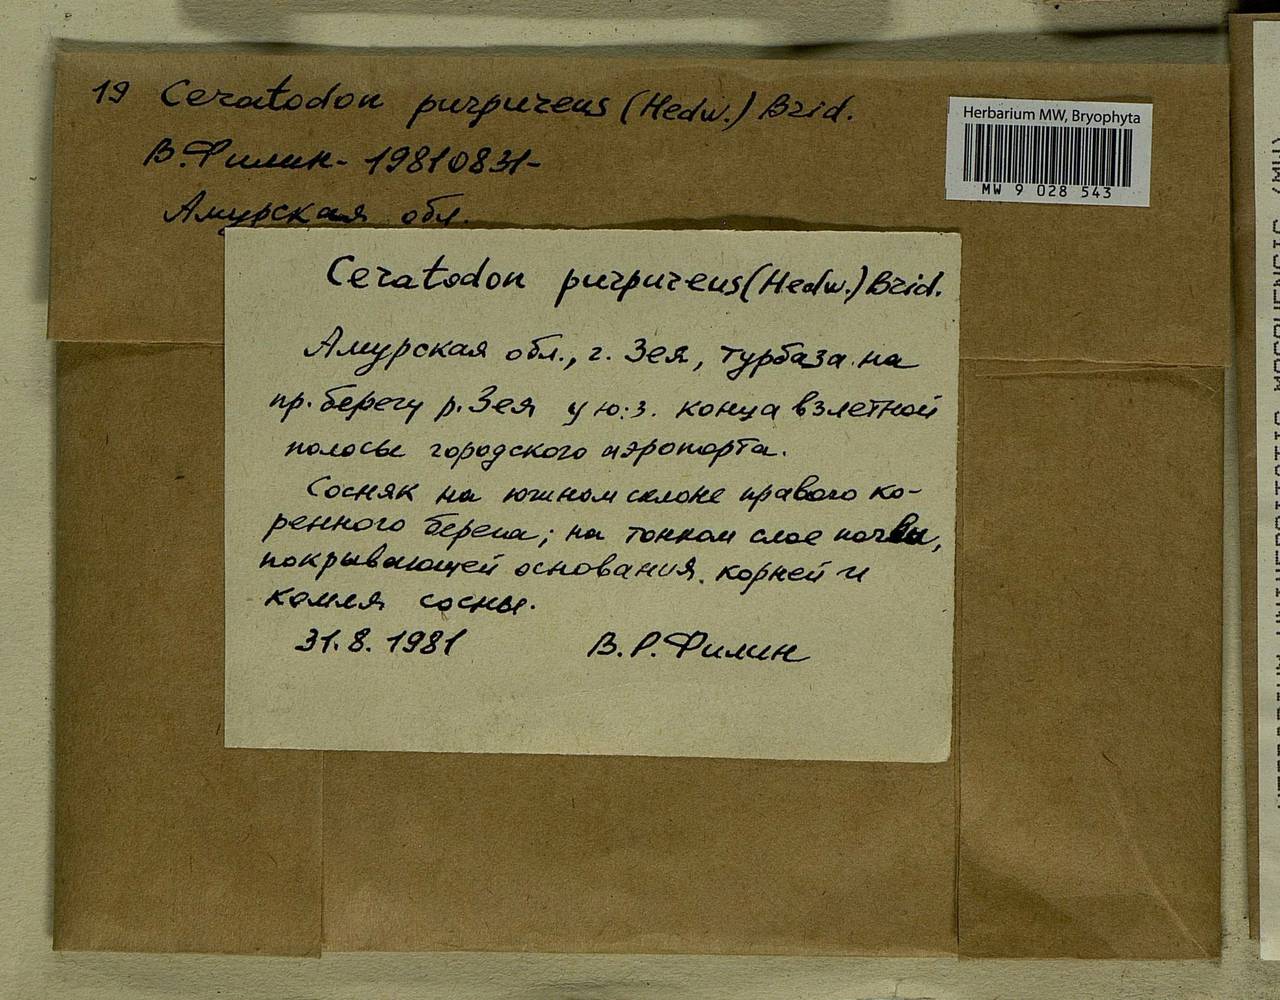 19 Ceratodon purpureus (Hedw.) Brid.
В. Филин - 19810831 -
Амурская обл.
Herbarium MW, Bryophyta
MW 9 028 543
Ceratodon purpureus (Hedw.) Brid.
Амурская обл., г. Зея, турбаза на
пр. берегу р. Зея у ю.-з. конца взлетной
полосы городского аэропорта.
Сосняк на южном склоне правого ко-
ренного берега; на тонком слое почвы,
покрывающей основания корней и
комля сосны.
31.8.1981 В. Р. Филин